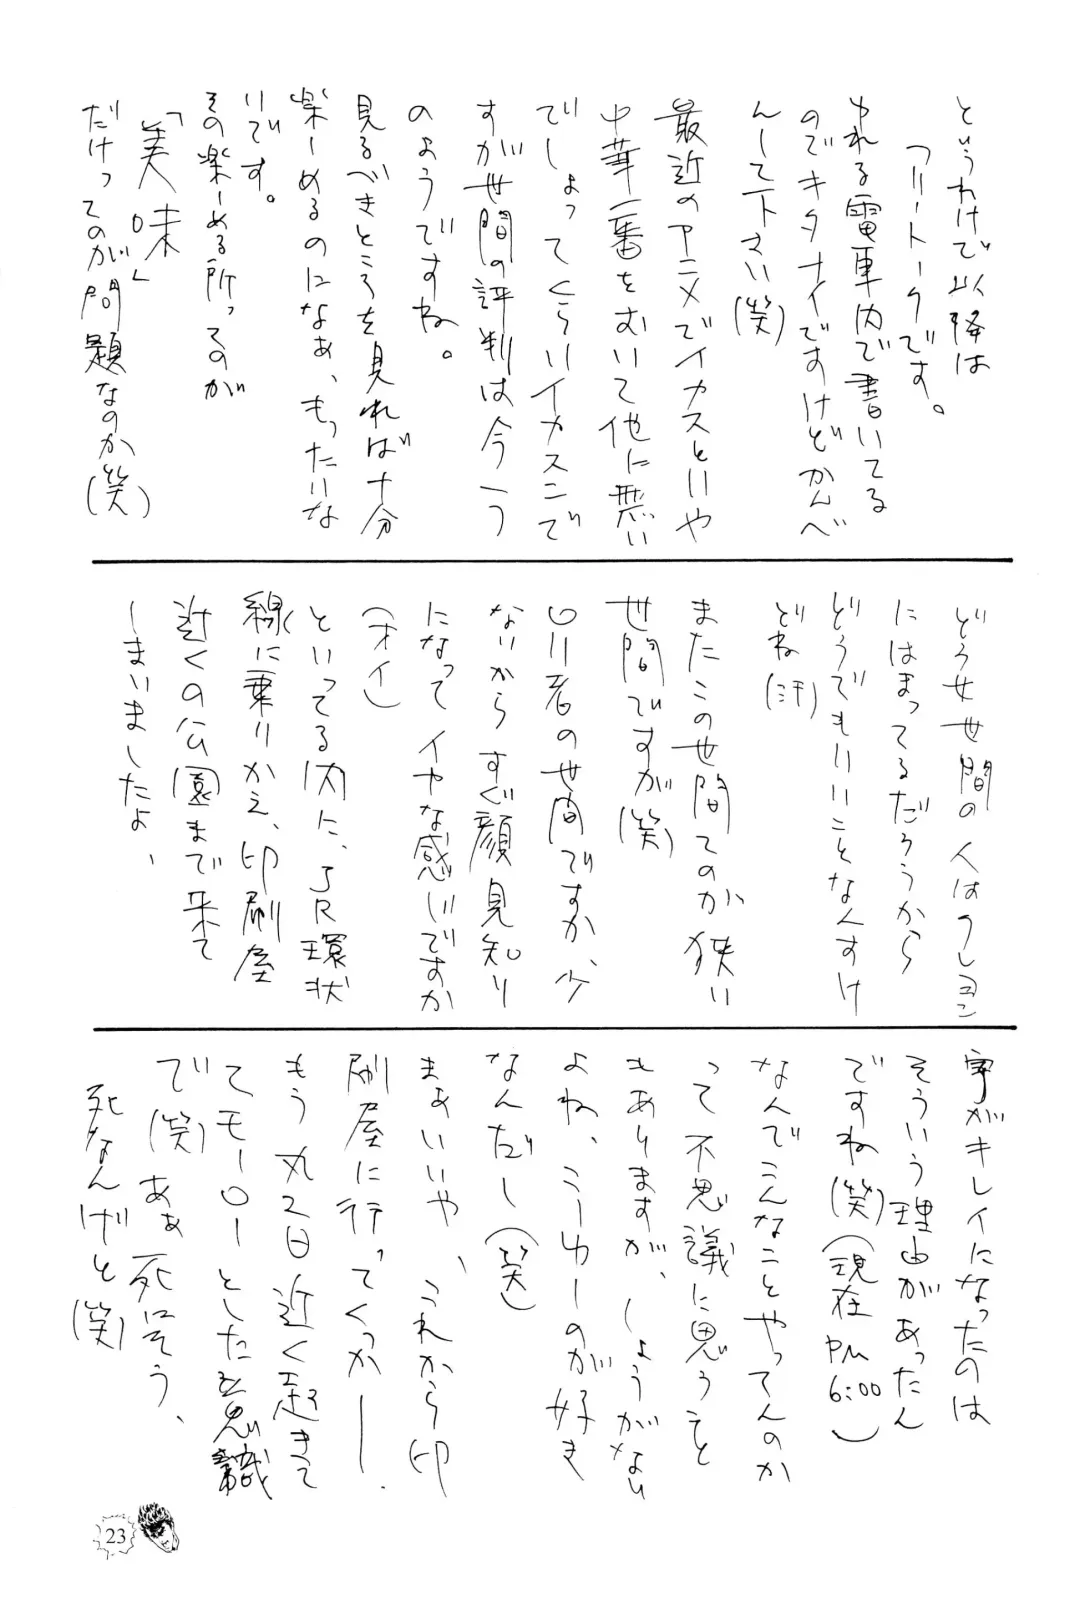 というわけで以降は
フリートークです。
ゆれる電車内で書いてる
のでキタナイですけどかんべ
んして下さい(笑)
最近のアニメでイカスといや
中華一番をおいて他に無い
でしょってくらいイカスンで
すが世間の評判は今一つ
のようですね。
見るべきところを見れば十分
楽しめるのになぁ、もったいな
いです。
その楽しめる所ってのが
「美味」
だけってのが問題なのか(笑)
どうせ世間の人はクレヨン
にはまってるだろうから
どうでもいいことなんすけ
どね(汗)
またこの世間てのが狭い
世間ですが(笑)
ロリ者の世間ですか、少
ないからすぐ顔見知り
になってイヤな感じですが
(オイ)
といってる内に、JR環状
線に乗りかえ、印刷屋
近くの公園まで来て
しまいましたよ、
字がキレイになったのは
そういう理由があったん
ですね(笑)(現在PM6:00)
なんでこんなことやってんのか
って不思議に思うこと
もありますが、しょうがない
よね、こーゆーのが好き
なんだし(笑)
まぁいいや、これから印
刷屋に行ってくっかー.
もう丸2日近く起きて
てモーローとした意識
で(笑)あぁ死にそう、
死なんけど(笑)
23